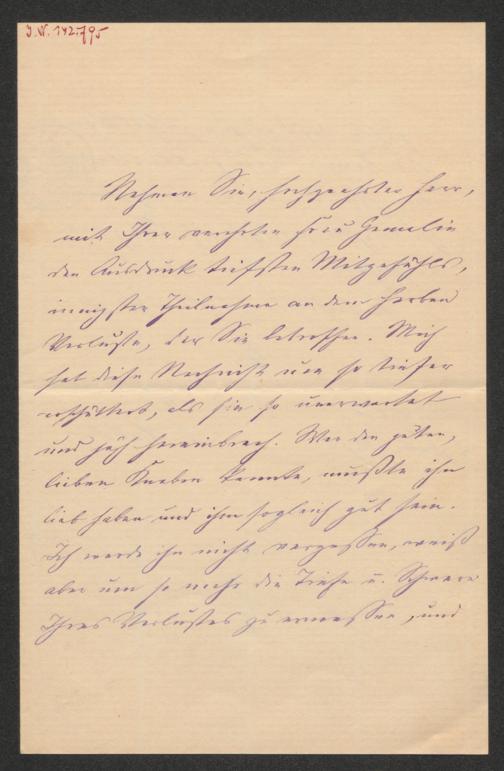 J.N. 142.795
Nehmen Sie, hochgeehrter Herr,
mit Ihrer verehrten Frau Gemalin
den Ausdruck tiefsten Mitgefühls,
innigster Theilnahme an dem herben
Verluste, der Sie betroffen. Mich
hat diese Nachricht um so tiefer
erschüttert, als sie so unerwartet
und jäh hereinbrach. Wer den guten,
lieben Knaben kannte, mußte ihn
lieb haben und ihm sogleich gut sein.
Ich werde ihn nicht vergessen, weiß
aber um so mehr die Tiefe u. Schwere
Ihres Verlustes zu ermessen, und